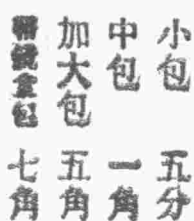 小包　五分
中包　一角
加大包　五角
盒包　七角